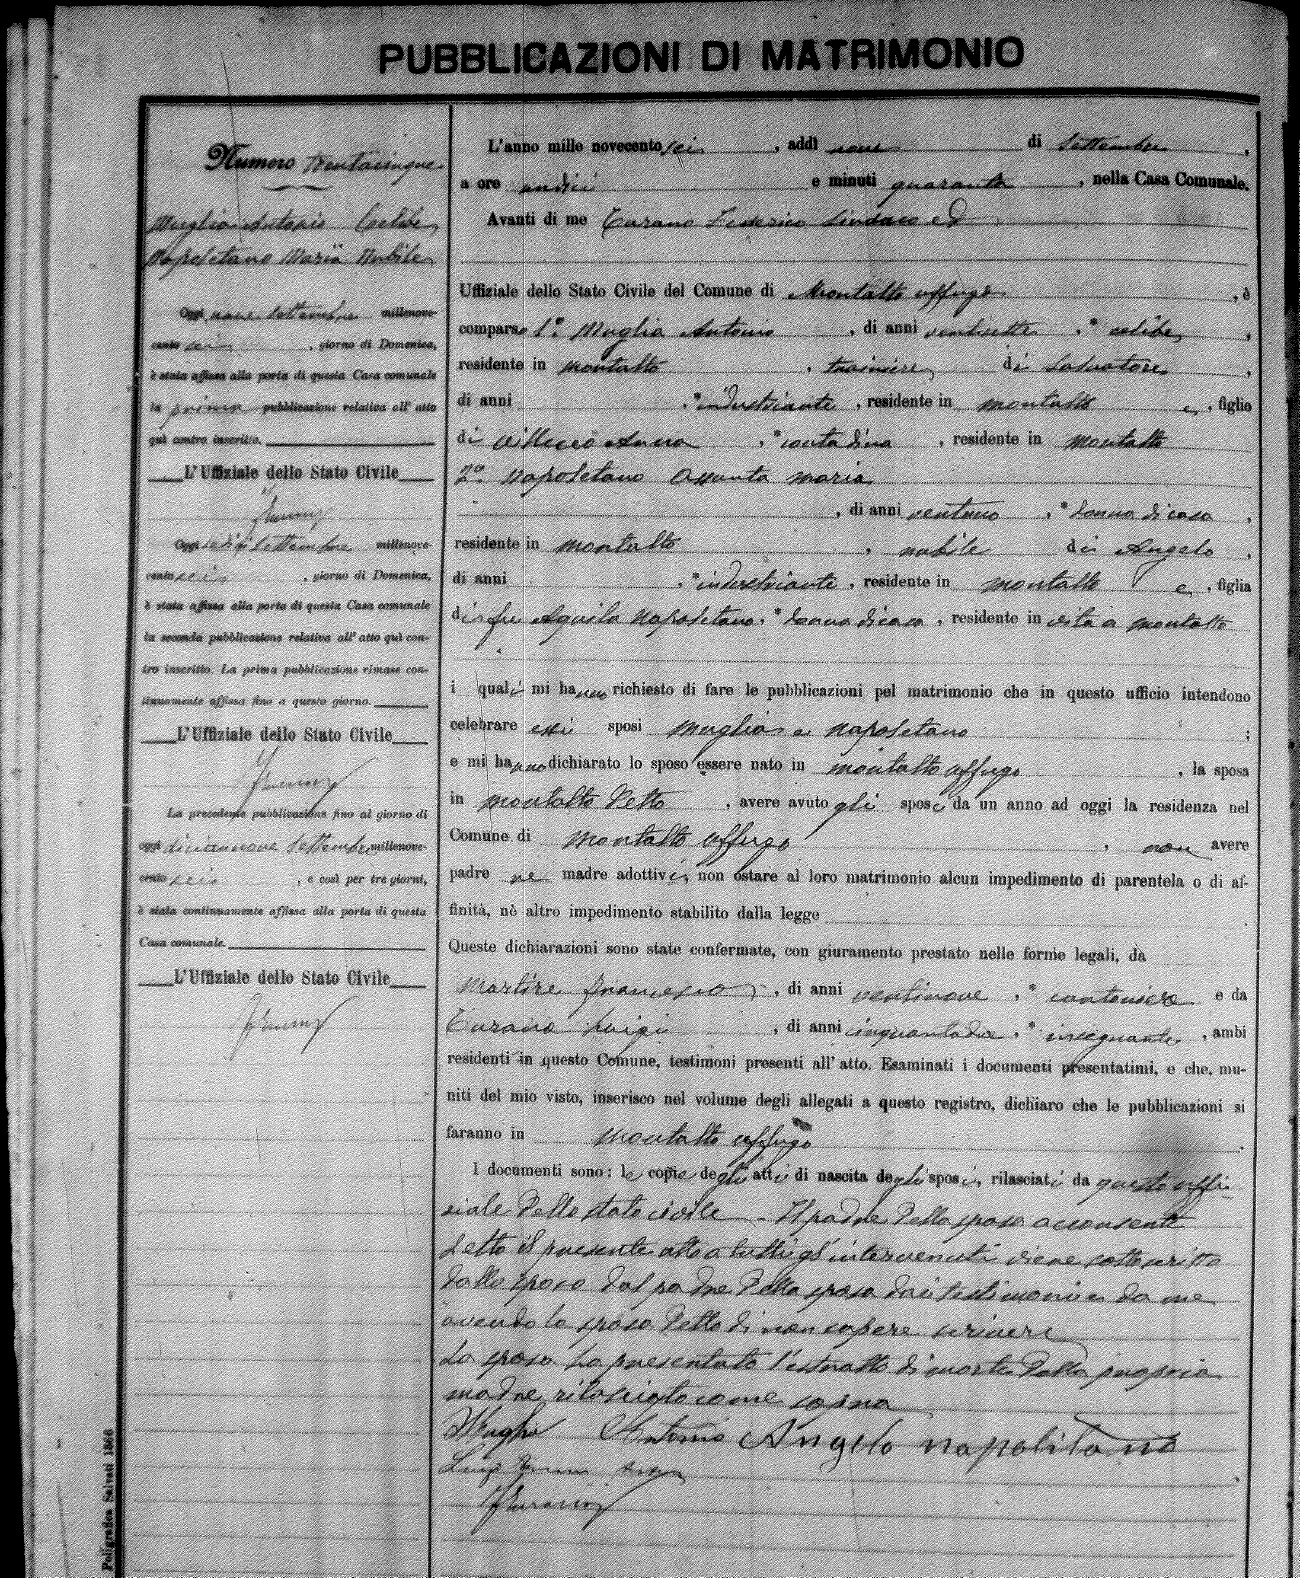 PUBBLICAZIONI DI MATRIMONIO
Numero trentacinque
Muglia Antonio Celibe
Napoletano Maria Nubile
Oggi nove Settembre millenove-
cento sei, giorno di Domenica,
è stata affissa alla porta di questa Casa comunale
la prima pubblicazione relativa all' atto
quì contro inscritto.
L'Uffiziale dello Stato Civile
Oggi sedici Settembre millenove-
cento sei, giorno di Domenica,
è stata affissa alla porta di questa Casa comunale
la seconda pubblicazione relativa all' atto quì con-
tro inscritto. La prima pubblicazione rimase con-
tinuamente affissa fino a questo giorno.
L'Uffiziale dello Stato Civile
La precedente pubblicazione fino al giorno di
oggi diciannove Settembre millenove-
cento sei, e così per tre giorni,
è stata continuamente affissa alla porta di questa
Casa comunale.
L'Uffiziale dello Stato Civile
L'anno mille novecento sei, addì nove di Settembre,
a ore undici e minuti quaranta, nella Casa Comunale.
Avanti di me Turano Federico Sindaco ed
Uffiziale dello Stato Civile del Comune di Montalto Uffugo, è
comparso 1.° Muglia Antonio, di anni ventisette, celibe,
residente in Montalto, di Salvatore,
di anni , industriante, residente in Montalto e, figlio
di Anna, contadina, residente in Montalto
2.° Napoletano Assunta Maria
, di anni ventuno, donna di casa,
residente in Montalto, nubile di Angelo,
di anni , industriante, residente in Montalto e, figlia
di fu Aquila Napoletano, donna di casa, residente in vita a Montalto
i quali mi hanno richiesto di fare le pubblicazioni pel matrimonio che in questo ufficio intendono
celebrare essi sposi Muglia e Napoletano;
e mi hanno dichiarato lo sposo essere nato in Montalto Uffugo, la sposa
in Montalto detto, avere avuto gli sposi da un anno ad oggi la residenza nel
Comune di Montalto Uffugo, non avere
padre nè madre adottivi, non ostare al loro matrimonio alcun impedimento di parentela o di af-
finità, nè altro impedimento stabilito dalla legge
Queste dichiarazioni sono state confermate, con giuramento prestato nelle forme legali, da
Martire Francesco, di anni ventinove, cantoniere e da
Turano Luigi, di anni cinquantadue, insegnante, ambi
residenti in questo Comune, testimoni presenti all' atto. Esaminati i documenti presentatimi, e che, mu-
niti del mio visto, inserisco nel volume degli allegati a questo registro, dichiaro che le pubblicazioni si
faranno in Montalto Uffugo.
I documenti sono: le copie degli atti di nascita degli sposi, rilasciati da questo Uffi-
ziale dello stato civile. Il padre della sposa acconsente
Letto il presente atto a tutti gl'intervenuti viene sottoscritto
dallo sposo dal padre della sposa dai testimoni e da me
avendo la sposa detto di non sapere scrivere
La sposa ha presentato l'estratto di morte della propria
madre rilasciato come sopra
Muglia Antonio Angelo napolitano
Poligrafica Salvati 1866